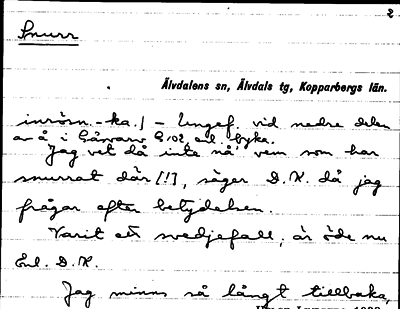 2
Snurr
Älvdalens sn, Älvdals tg, Kopparbergs län.
inrösn. -ka.) - Ungef. vid nedre delen
av å i Gåsvarv G:02 enl. byka.
Jag vet då inte nå' vem som har
snurrat där [!], säger D.K. då jag
frågar efter betydelsen.
Varit ett svedjefall, är öde nu
Enl. D.K.
Jag minns så långt tillbaka,